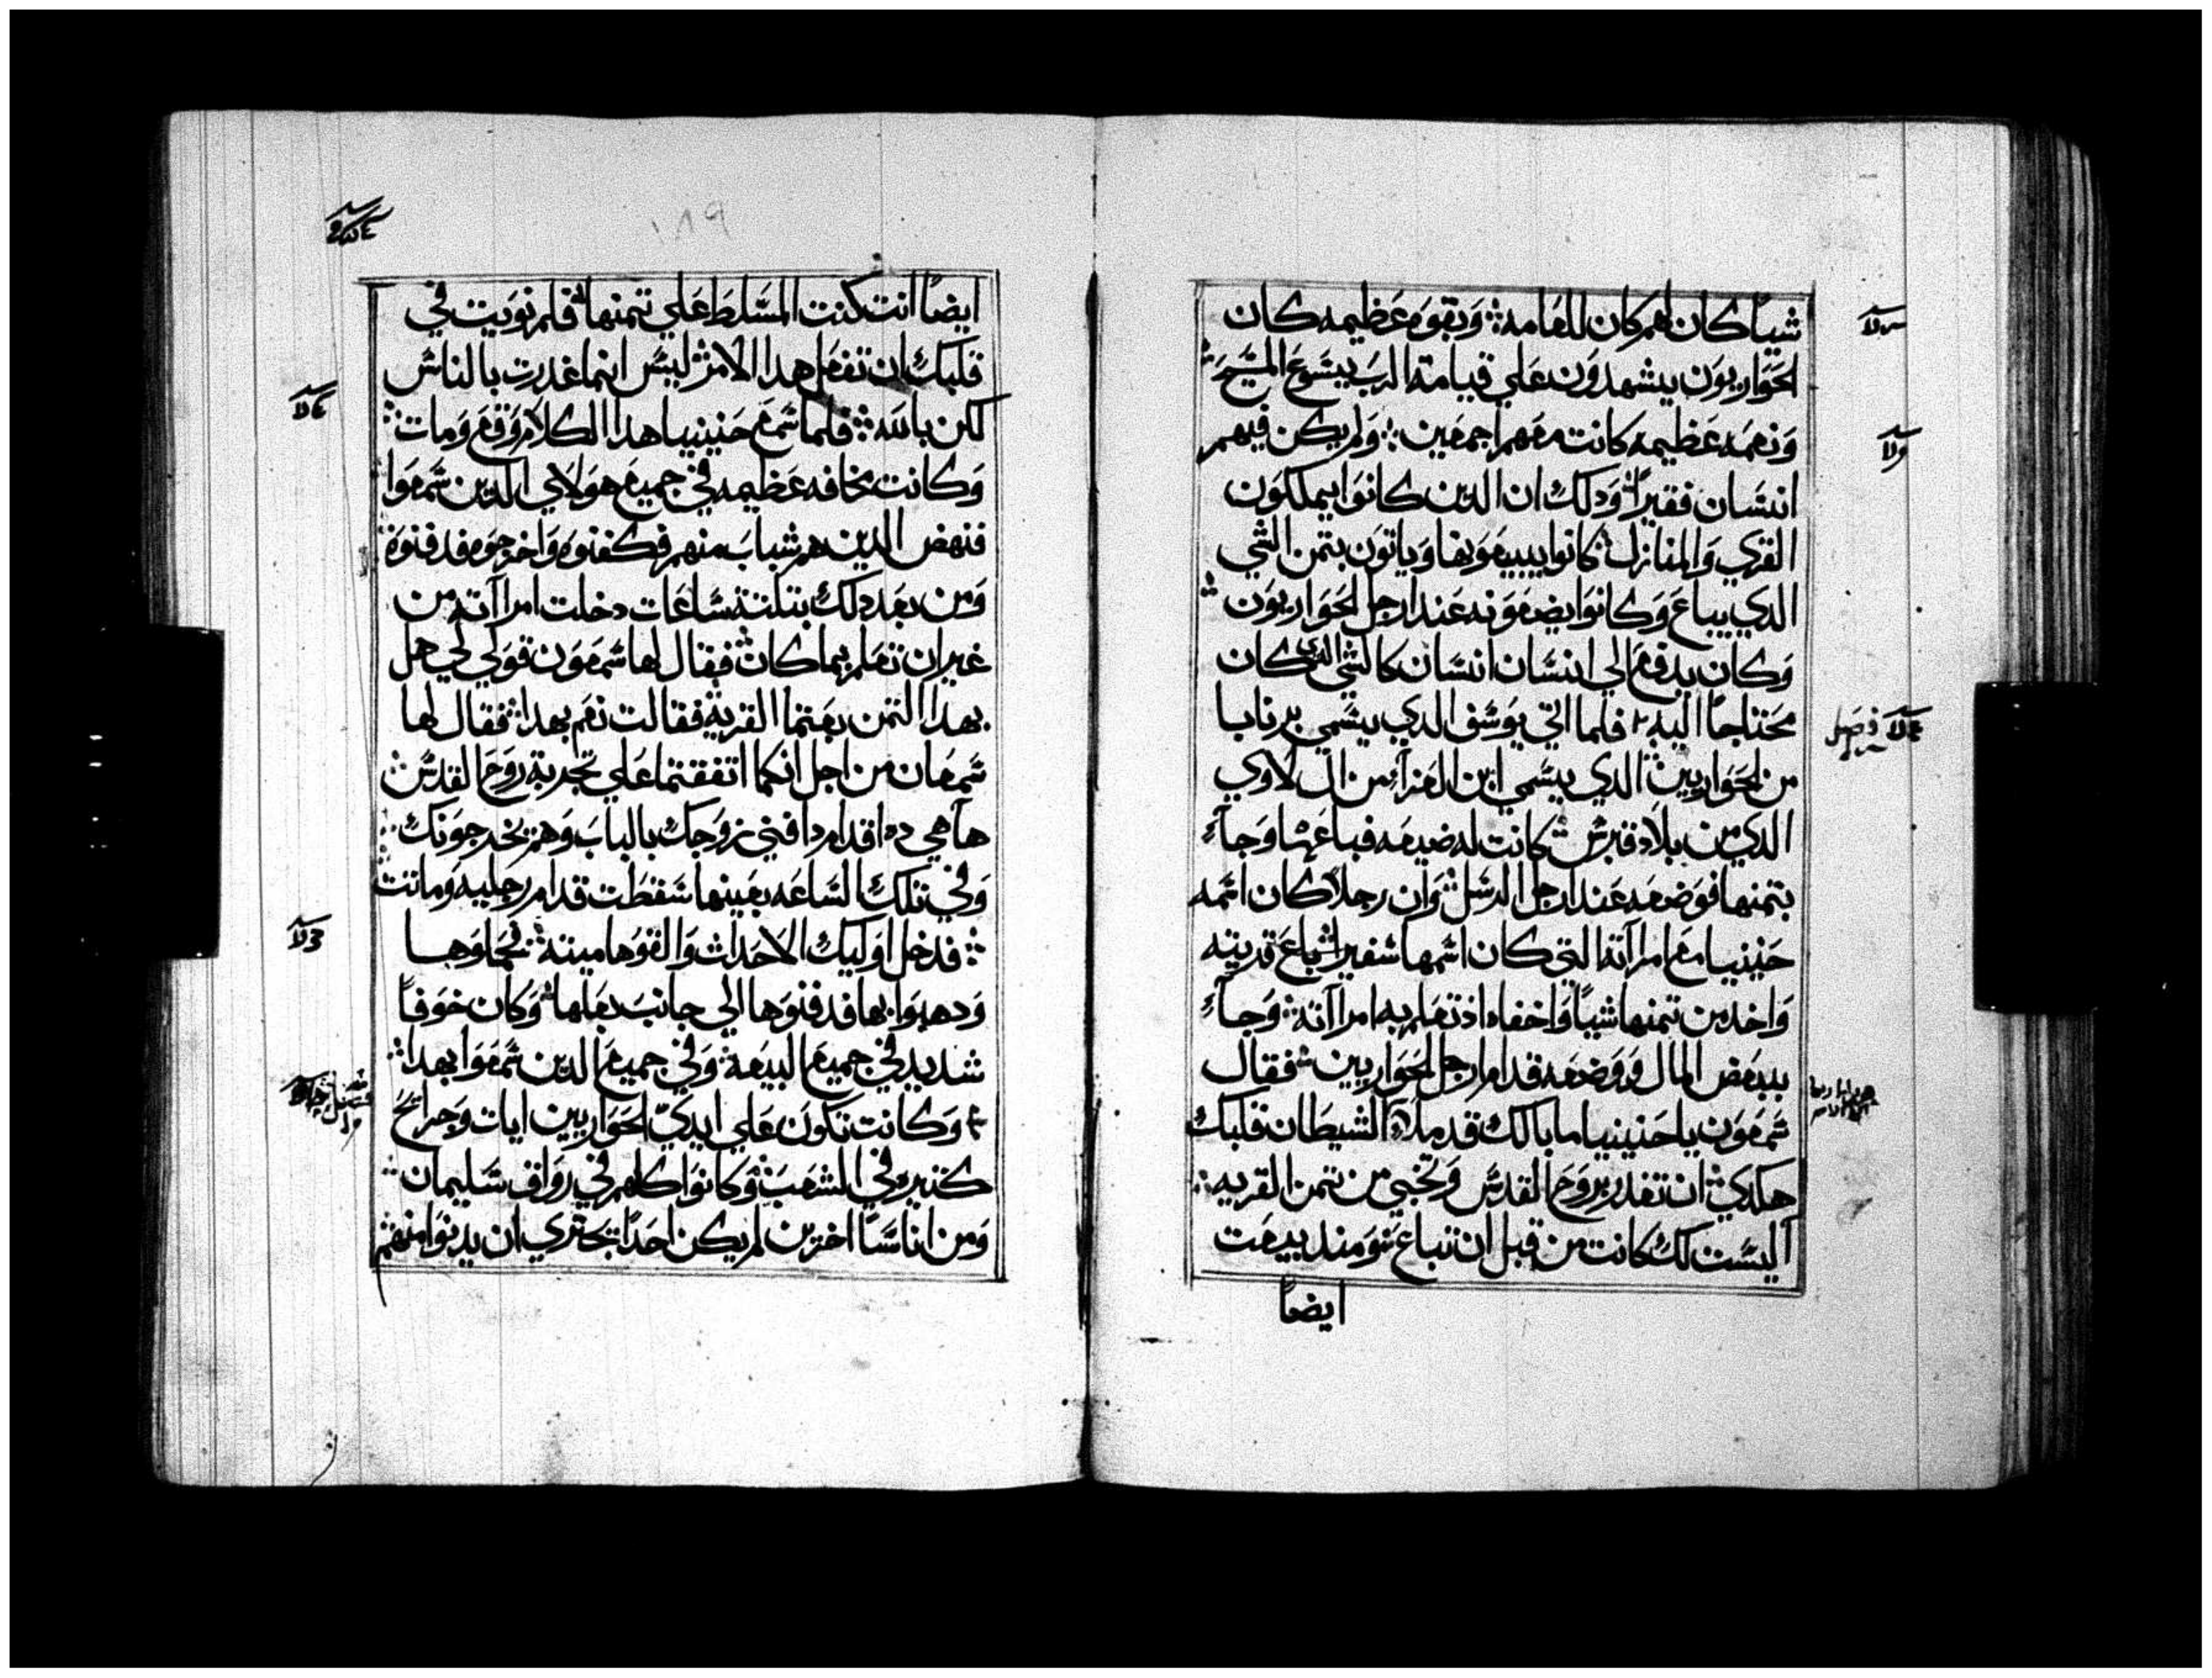 شيياً كان لهم كان للعامه ⁘ وَبقوه عَظيمه كان
الحَوَاريوَن يشهدوَن عَلي قيامة الربَ يسَوع المسَيح
وَنعمَه عَظيمه كانت معَهم اجمعَين ⁘ وَلم يكن فيهم
انسَان فقيراً وَدلك ان الدين كانوَا يملكوَن
القري وَالمنازل كانوا يبيعَوَنها وَياتوَن بتمن الشي
الدي يباعَ وَكانوَا يضعَوَنه عَند ارجل الحَوَاريوَن
وَكان يدفعَ الي انسَان انسَان كالشي الدي كان
محَتاجاً اليه فلما اتي يوَسَف الدي يسَمي برنابا
من الحَوَاريين الدي يسَمي ابن العَزاء من ال لاوي
الدي من بلاد قبرسَ كانت له ضيعَه فباعَها وَجآء
بتمنها فوَضعَه عَند ارجل الرسَل وَان رجلاً كان اسَمه
حَنينيا معَ امرآته التي كان اسَمها سَفيرا باعَ قريته
وَاخد من تمنها شياً وَاخفاه اذ تعَلم به امراآته وَجآء
ببعَض المال وَوَضعَه قدام ارجل الحَوَاريين فقال
شمعَوَن يا حَنينيا ما بالك قد ملاء الشيطان قلبك
هكدي ان تغدر بروَحَ القدسَ وَتخبي من تمن القريه
اليسَت لك كانت من قبل ان تباعَ وَمند بيعَت
ايضاً
ايضاً انت كنت المسَلط عَلي تمنها فلم نوَيت في
قلبك ان تفعَل هدا الامر ليسَ انما غدرت بالناسَ
لكن بالله ⁘ فلما سَمعَ حَنينيا هدا الكلام وَقعَ وَمات
وَكانت مخافه عَظيمه في جميعَ هوَلاي الدين سَمعَوَا
فنهض الدين هم شبابَ منهم فكفنوَه وَاخرجوَه فدفنوَه
وَمن بعَد دلك بتلتة سَاعَات دخلت امراآته من
غير ان تعَلم بما كان فقال لها سَمعَوَن قوَلي لي هل
بهدا التمن بعَتما القرية فقالت نعَم بهدا فقال لها
سَمعَان من اجل انكما اتفقتما عَلي تجربة روَحَ القدسَ
هآ هي ده اقدام دافني زوَجك بالبابَ وَهم يخرجوَنك
وَفي تلك السَاعَه بعَينها سَقطَت قدام رجليه وَماتت
فدخل اوَليك الاحَدات وَالقوَها ميته فحماوَها
وَدهبوَا بها فدفنوَها الي جانبَ بعَلها وَكان خوَفاً
شديد في جميعَ البيعَة وَفي جميعَ الدين سَمعَوَا بهدا
وَكانت تكوَن عَلي ايديّ الحَوَاريين ايات وَجرايحَ
كتيره في الشعَبَ وَكانوَا كلهم في روَاق سَليمان
وَمن اناسَاً اخرين لم يكن احَداً يجتري ان يدنوَا منهم